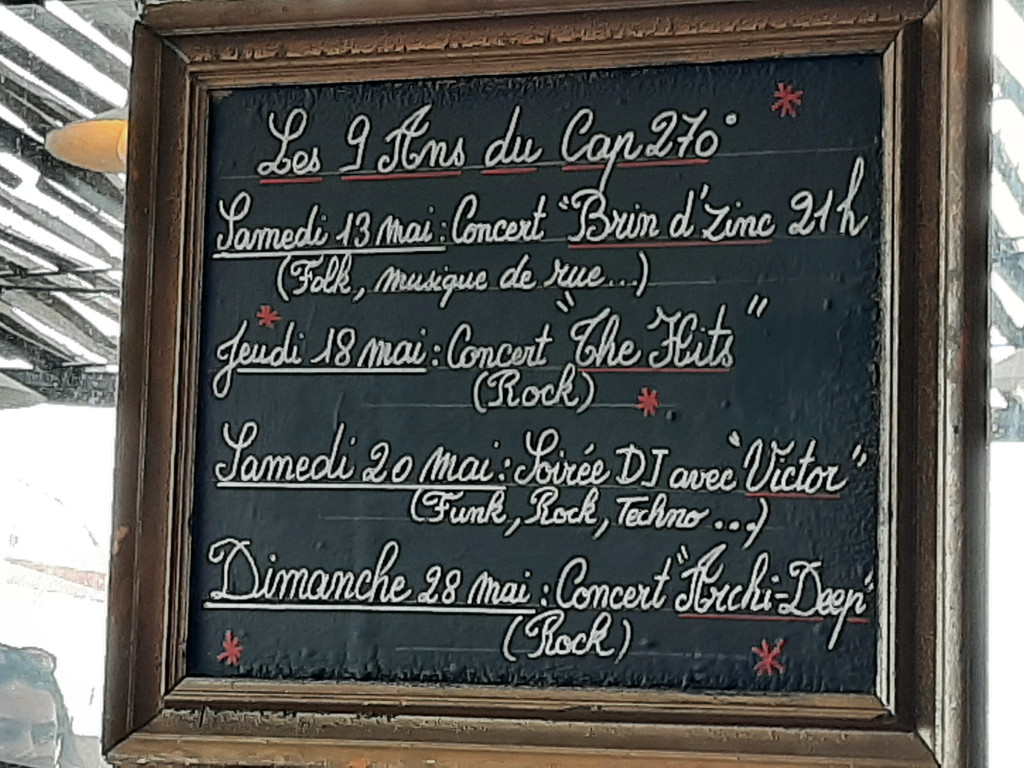 Les 9 Ans du Cap 270°
Samedi 13 mai : Concert "Brin d'Zinc 21h
(Folk, musique de rue...)
Jeudi 18 mai : Concert "The Hits"
(Rock)
Samedi 20 mai : Soirée DJ avec "Victor"
(Funk, Rock, Techno...)
Dimanche 28 mai : Concert "Archi-Deep"
(Rock)